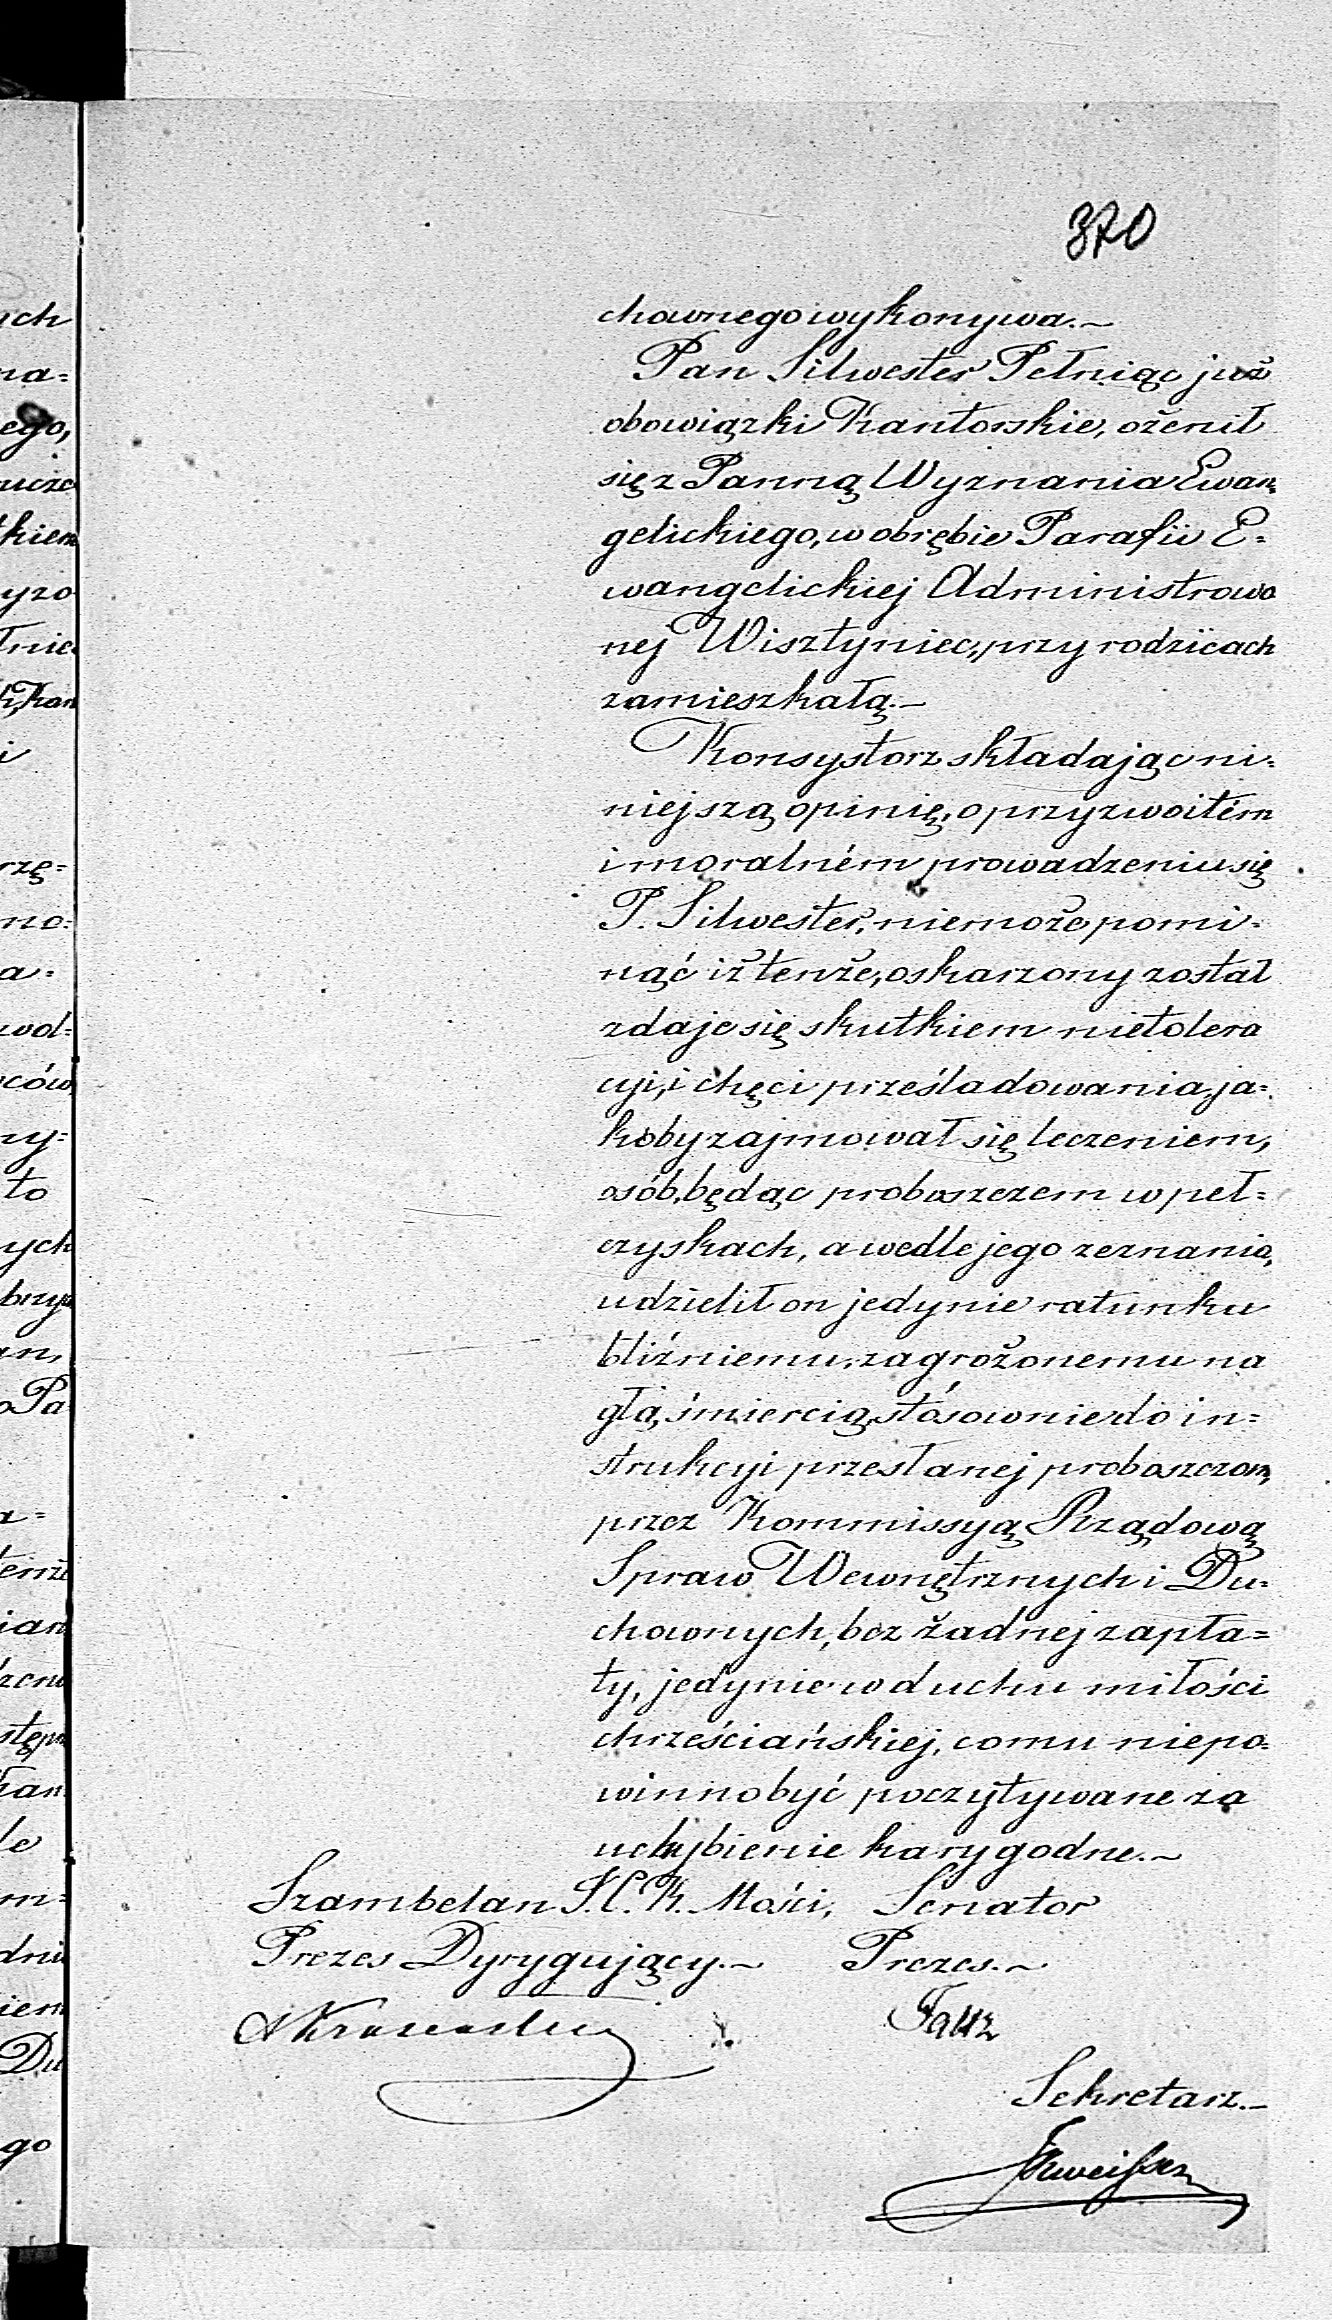 370
chownego wykonywa.—
Pan Silwester Pełniąc już
obowiązki Kantorskie, ożenił
się z Panną Wyznania Ewan
gelickiego, w obrębie Parafii E=
wangelickiej Administrowa
nej Wisztyniec, przy rodzicach
zamieszkałą.—
Konsystorz składając ni=
niejszą opinię, o przyzwoitém
i moralném prowadzeniu się
P. Silwester, niemoże pomi=
nąć iż tenże, oskarzony został
zdaje się skutkiem nietolera
cyi, i chęci prześladowania, ja=
koby zajmował się leczeniem,
osób, będąc proboszczem w peł=
czyskach, a wedle jego zeznania,
udzielił on jedynie ratunku
bliźniemu, zagrożonemu na
głą, śmiercią, stósownie do in=
strukcyi przesłanej proboszczom,
przez Kommissyą Rządową
Spraw Wewnętrznych i Du=
chownych, bez żadnej zapła=
ty, jedynie w duchu miłości
chrześciańskiej, co mu niepo=
winno być poczytywane za
uchybienie karygodne.—
Szambelan J. C. K. Mości, Senator
Prezes Dyrygujący.— Prezes.—
Sekretarz.—
ych
na=
ego,
kiem
yzo
i
rzę=
no=
a=
wol=
ców,
ny=
to
ych
an,
o Pa
a=
le
m=
iem
Du
go